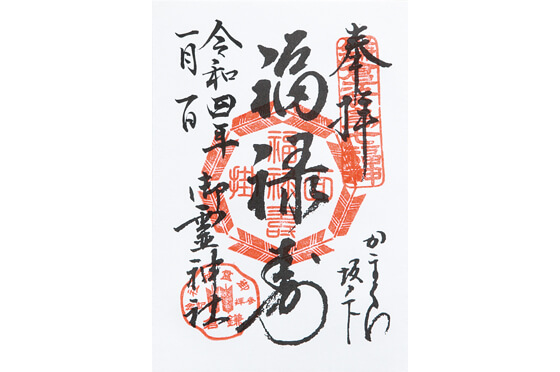 奉拝
かまくら
坂ノ下
福禄寿
御霊神社
令和四年
一月一日